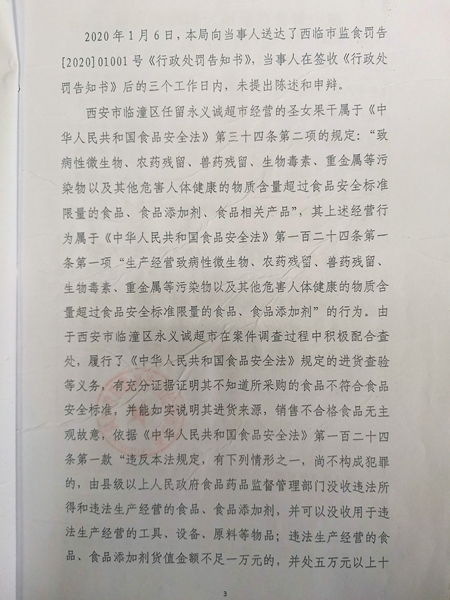 2020年1月6日，本局向当事人送达了西临市监食罚告
[2020]01001号《行政处罚告知书》，当事人在签收《行政处
罚告知书》后的三个工作日内，未提出陈述和申辩。
西安市临潼区任留永义诚超市经营的圣女果干属于《中
华人民共和国食品安全法》第三十四条第二项的规定：“致
病性微生物、农药残留、兽药残留、生物毒素、重金属等污
染物以及其他危害人体健康的物质含量超过食品安全标准
限量的食品、食品添加剂、食品相关产品”，其上述经营行
为属于《中华人民共和国食品安全法》第一百二十四条第一
条第一项“生产经营致病性微生物、农药残留、兽药残留、
生物毒素、重金属等污染物以及其他危害人体健康的物质含
量超过食品安全标准限量的食品、食品添加剂”的行为。由
于西安市临潼区永义诚超市在案件调查过程中积极配合查
处，履行了《中华人民共和国食品安全法》规定的进货查验
等义务，有充分证据证明其不知道所采购的食品不符合食品
安全标准，并能如实说明其进货来源，销售不合格食品无主
观故意，依据《中华人民共和国食品安全法》第一百二十四
条第一款“违反本法规定，有下列情形之一，尚不构成犯罪
的，由县级以上人民政府食品药品监督管理部门没收违法所
得和违法生产经营的食品、食品添加剂，并可以没收用于违
法生产经营的工具、设备、原料等物品；违法生产经营的食
品、食品添加剂货值金额不足一万元的，并处五万元以上十
3